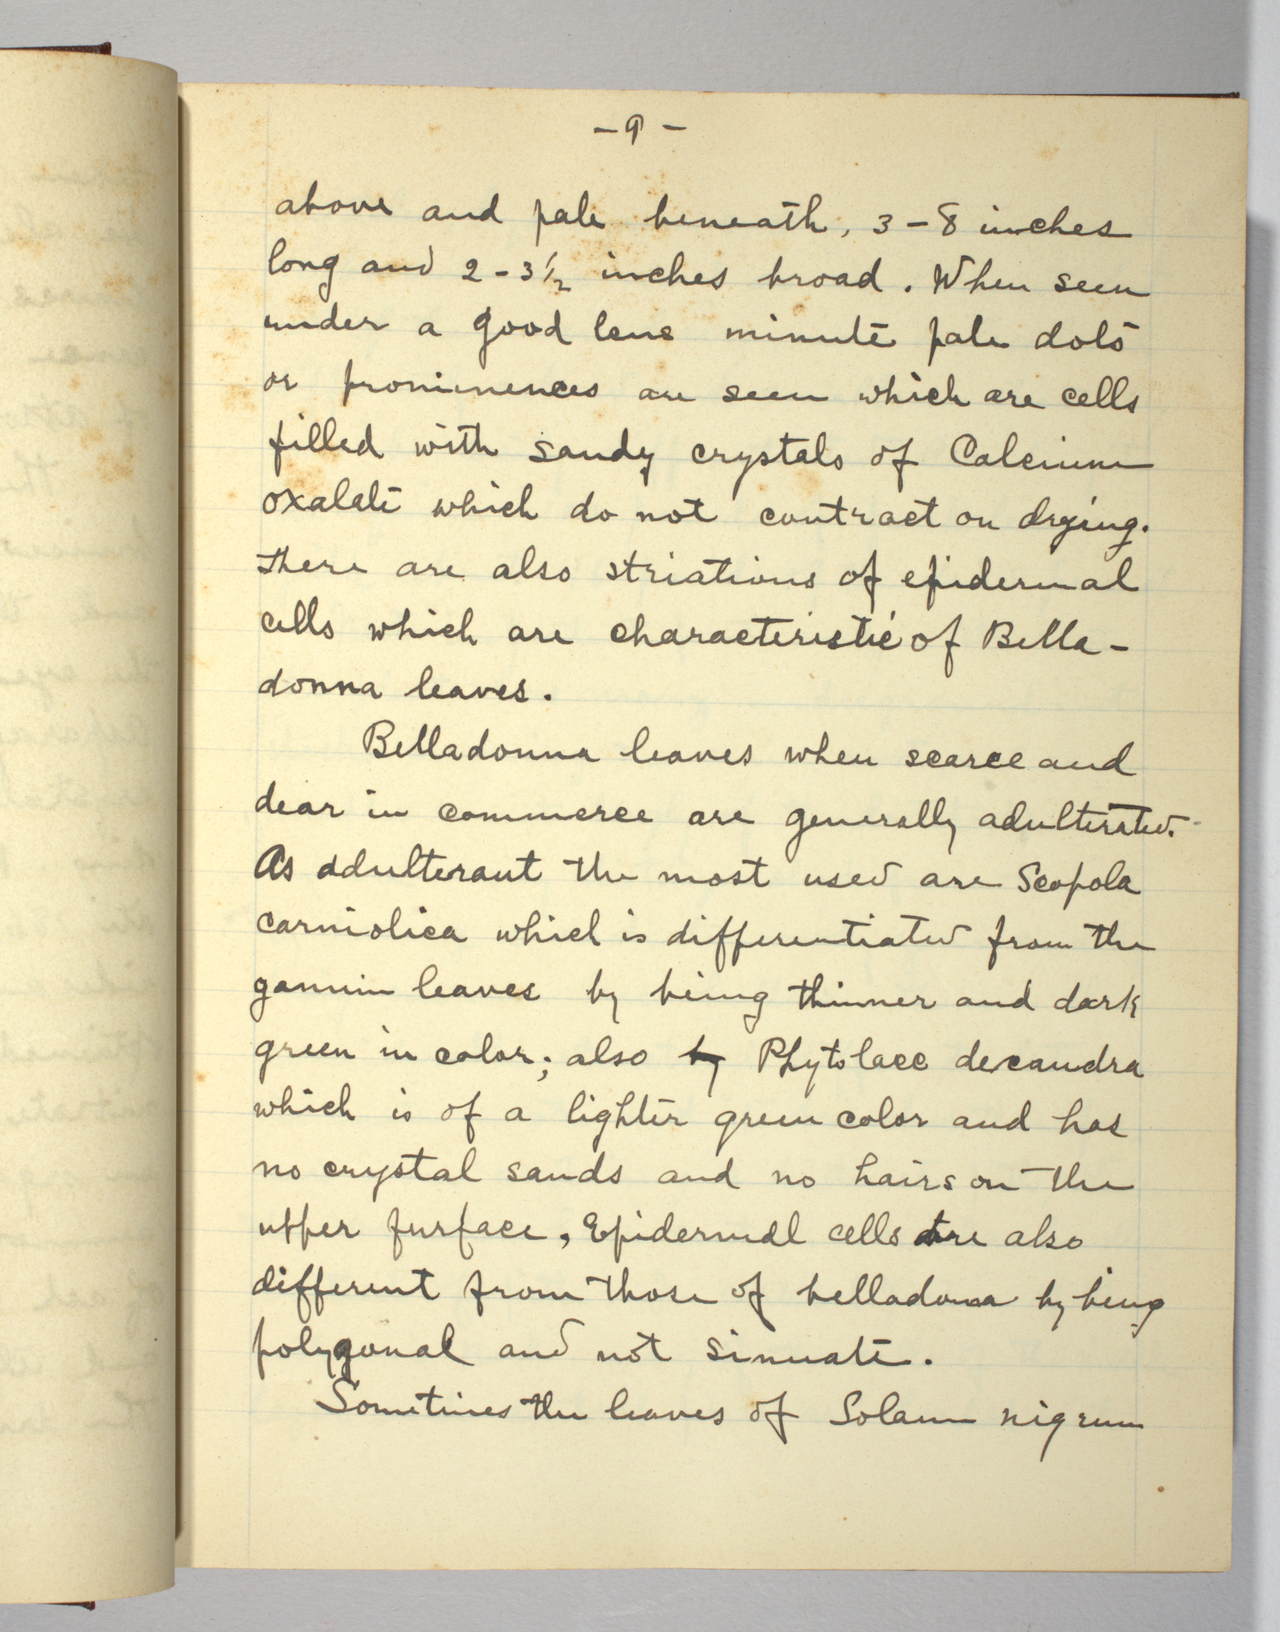 -9-
above and pale beneath, 3-8 inches
long and 2-3½ inches broad. When seen
under a good lens minute pale dots
or prominences are seen which are cells
filled with sandy crystals of Calcium
oxalate which do not contract on drying.
There are also striations of epidermal
cells which are characteristic of Bella-
donna leaves.
Belladonna leaves when scarce and
dear in commerce are generally adulterated.
As adulterant the most used are Scopola
carniolica which is differentiated from the
gannuin leaves by being thinner and dark
green in color; also by Phytolacc decandra
which is of a lighter green color and has
no crystal sands and no hairs on the
upper furface, Epidermal cells are also
different from those of belladonna by being
polygonal and not sinuate.
Sometimes the leaves of Solanum nigrum